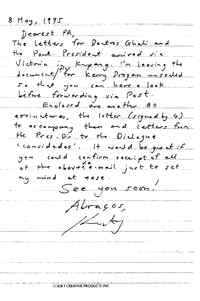 8 May, 1995
Dearest PA,
The letters for Boutros Ghali and
the Pont. President arrived via
Victoria in Kupang. I'm leaving the
document for Kerry Brogan unsealed
so that you can have a look
before forwarding via Post.
Enclosed are another
the letter (signed by 4)
to accompany them and letters from
the Pres. to the Dialogue
'convidados'. It would be great if
you could confirm receipt of all
of the above e-mail just to set
my mind at ease.
See you soon!
Abraços,